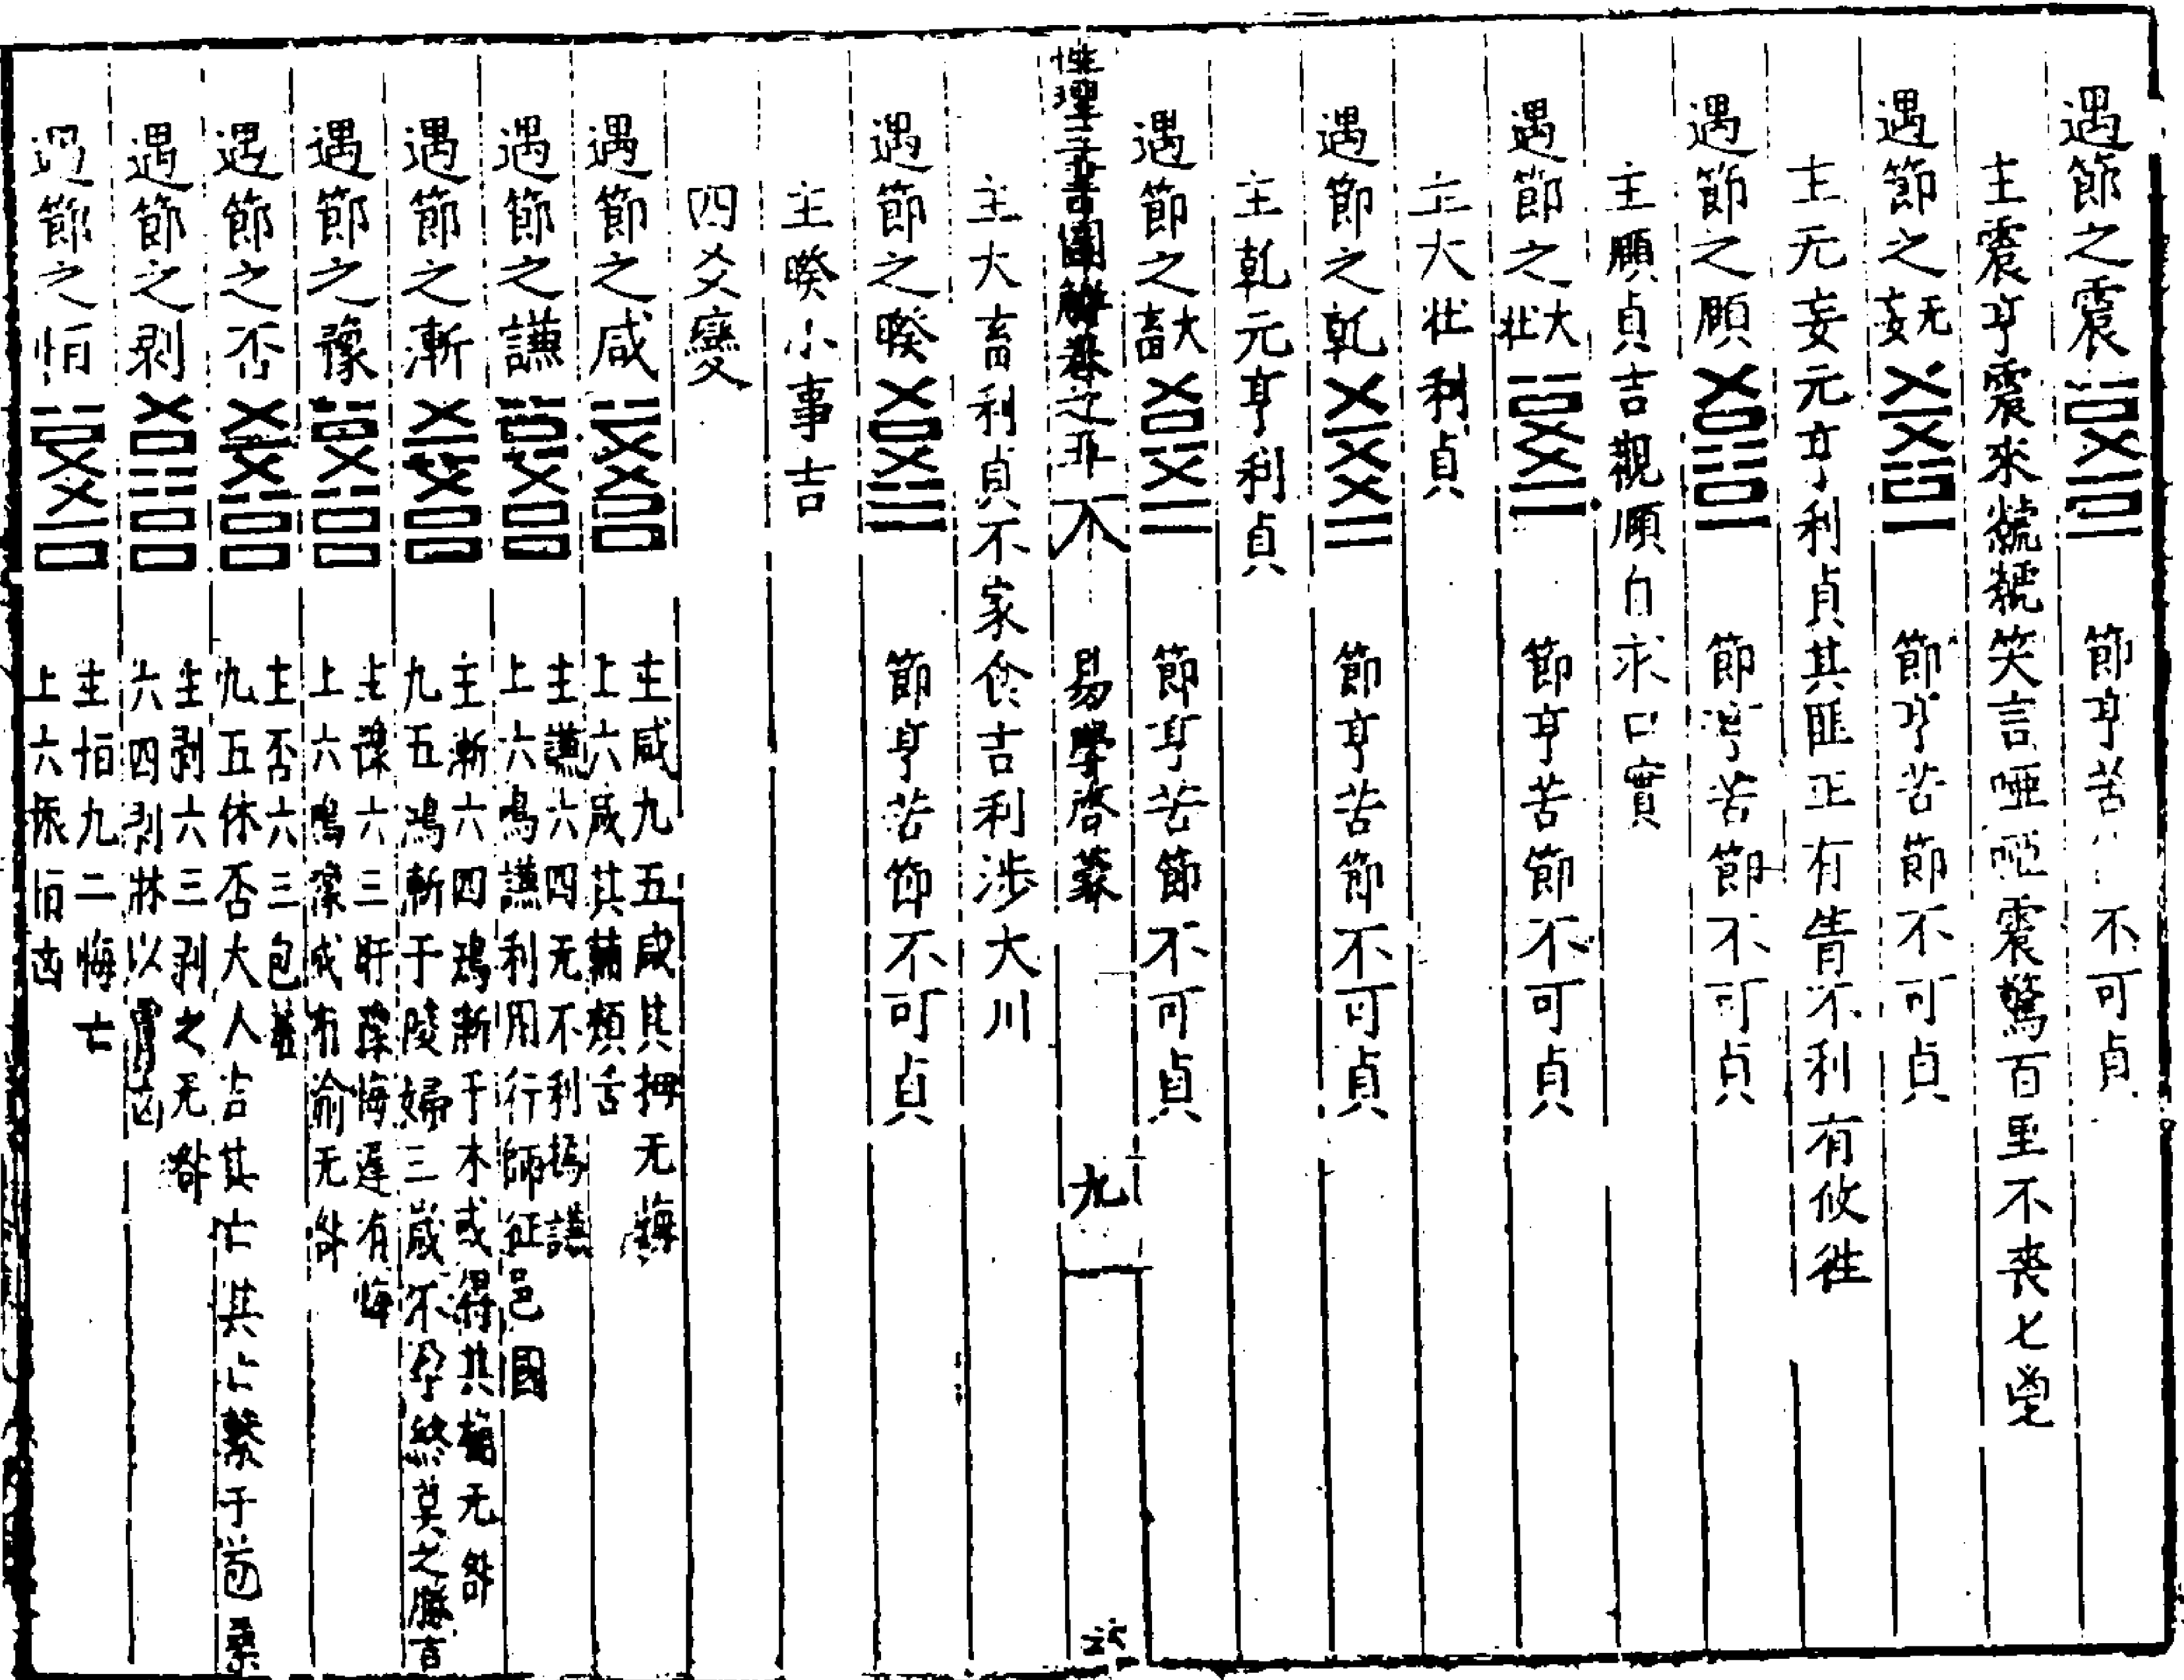 遇節之震 節亨苦 不可貞
主震亨震來虩虩笑言啞啞震驚百里不喪匕鬯
遇節之无妄 節亨苦節不可貞
主无妄元亨利貞其匪正有眚不利有攸往
遇節之頤 節亨苦節不可貞
主頤貞吉觀頤自求口實
遇節之大壯 節亨苦節不可貞
主大壯利貞
遇節之乾 節亨苦節不可貞
主乾元亨利貞
遇節之大畜 節亨苦節不可貞
性理三書圖解卷之 易學啓蒙 九
主大畜利貞不家食吉利涉大川
遇節之睽 節亨苦節不可貞
主睽小事吉
四爻變
遇節之咸 主咸九五咸其拇无悔
上六咸其輔頰舌
遇節之謙 主謙六四无不利撝謙
上六鳴謙利用行師征邑國
遇節之漸 主漸六四鴻漸于木或得其桷无咎
九五鴻漸于陵婦三歲不孕終莫之勝吉
遇節之豫 主豫六三盱豫悔遲有悔
上六鳴豫成有渝无咎
遇節之否 主否六三包羞
九五休否大人吉其亡其亡繫于苞桑
遇節之剥 主剥六三剥之无咎
六四剥牀以膚凶
遇節之恒 主恒九二悔亡
上六振恒凶